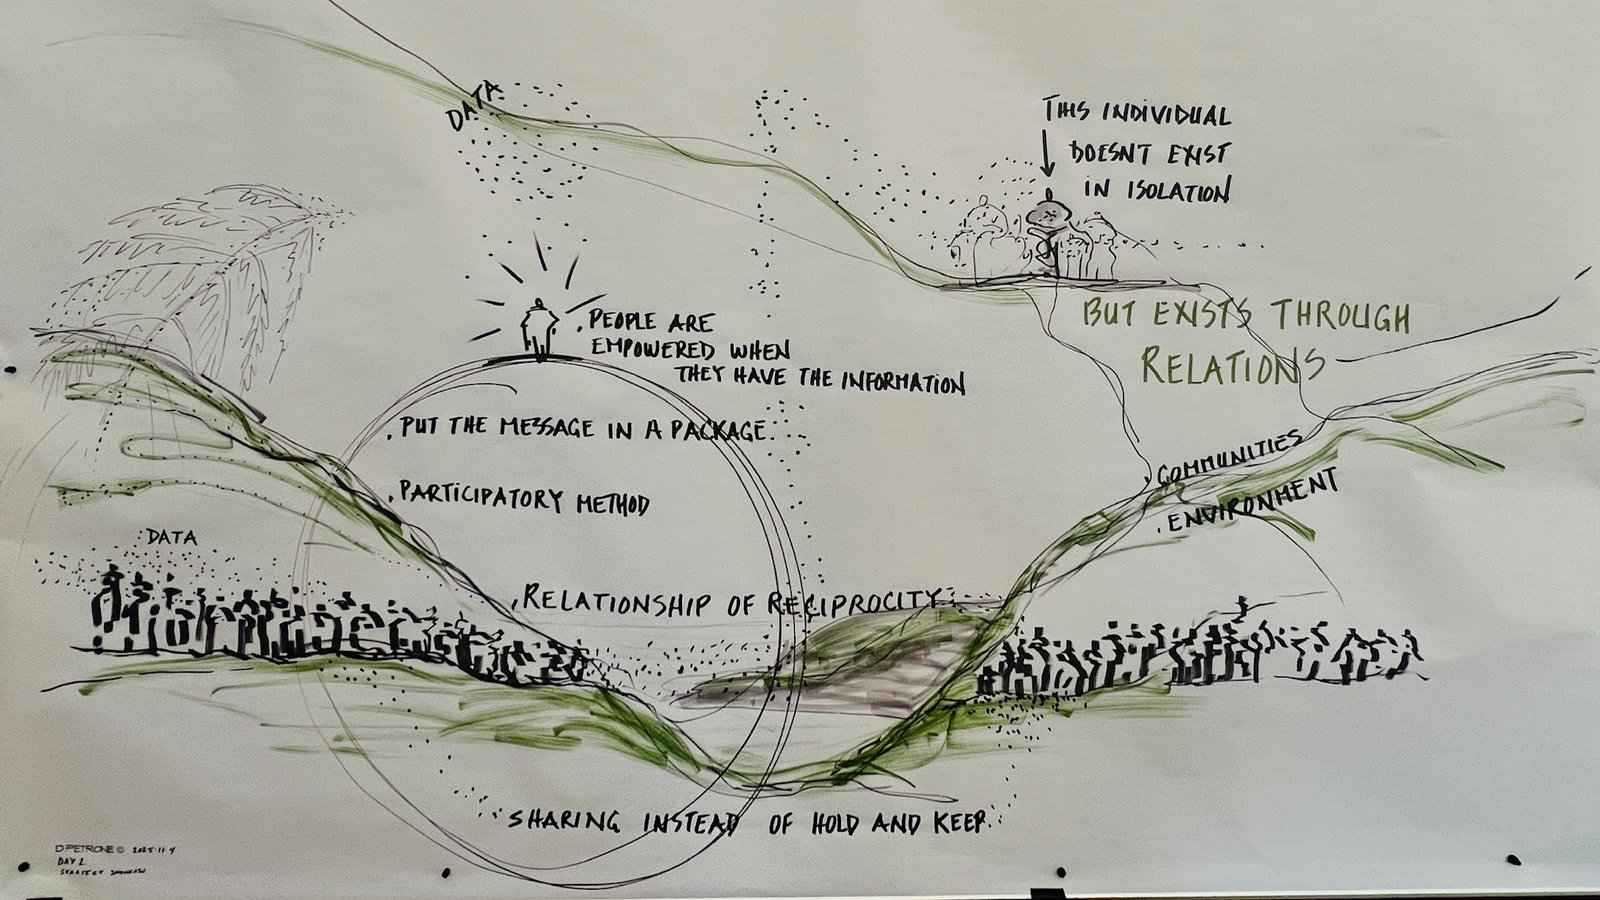 DATA
THIS INDIVIDUAL
DOESNT EXIST
IN ISOLATION
BUT EXISTS THROUGH
RELATIONS
. PEOPLE ARE
EMPOWERED WHEN
THEY HAVE THE INFORMATION
. PUT THE MESSAGE IN A PACKAGE
. PARTICIPATORY METHOD
. COMMUNITIES
. ENVIRONMENT
DATA
. RELATIONSHIP OF RECIPROCITY
. SHARING INSTEAD OF HOLD AND KEEP
D PETRONE © 2025.11.4
DAY 2
STRATEGY